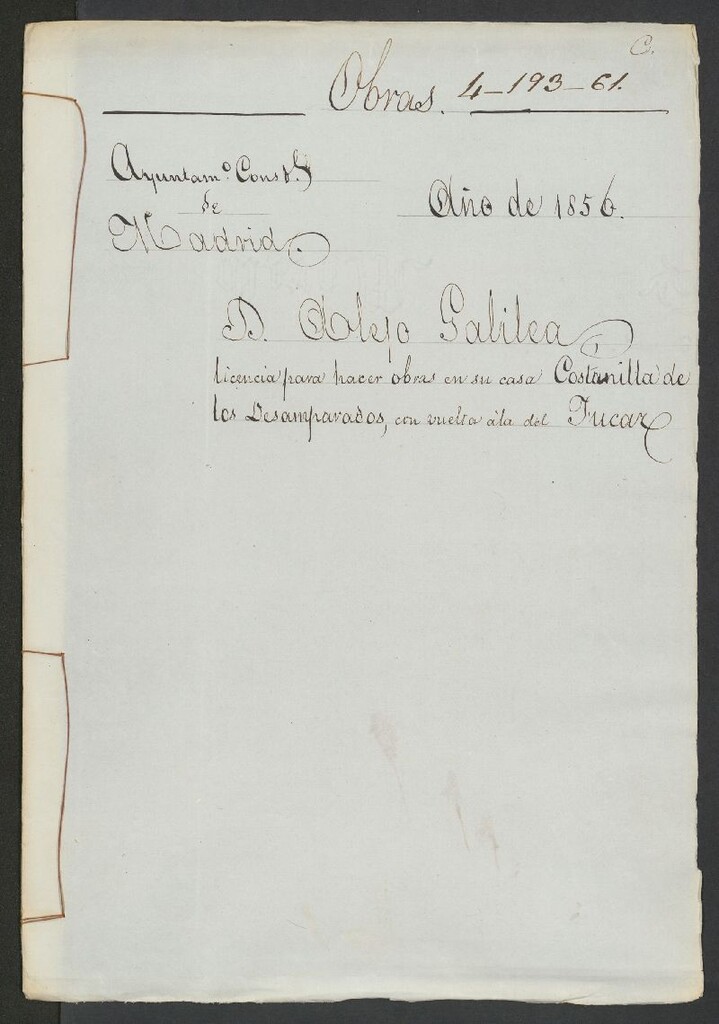 C.
Obras. 4-193-61.
Ayuntam.º Const.l
de
Madrid.
Año de 1856.
D. Alejo Galilea,
licencia para hacer obras en su casa Costanilla de
los Desamparados, con vuelta á la del Jucar